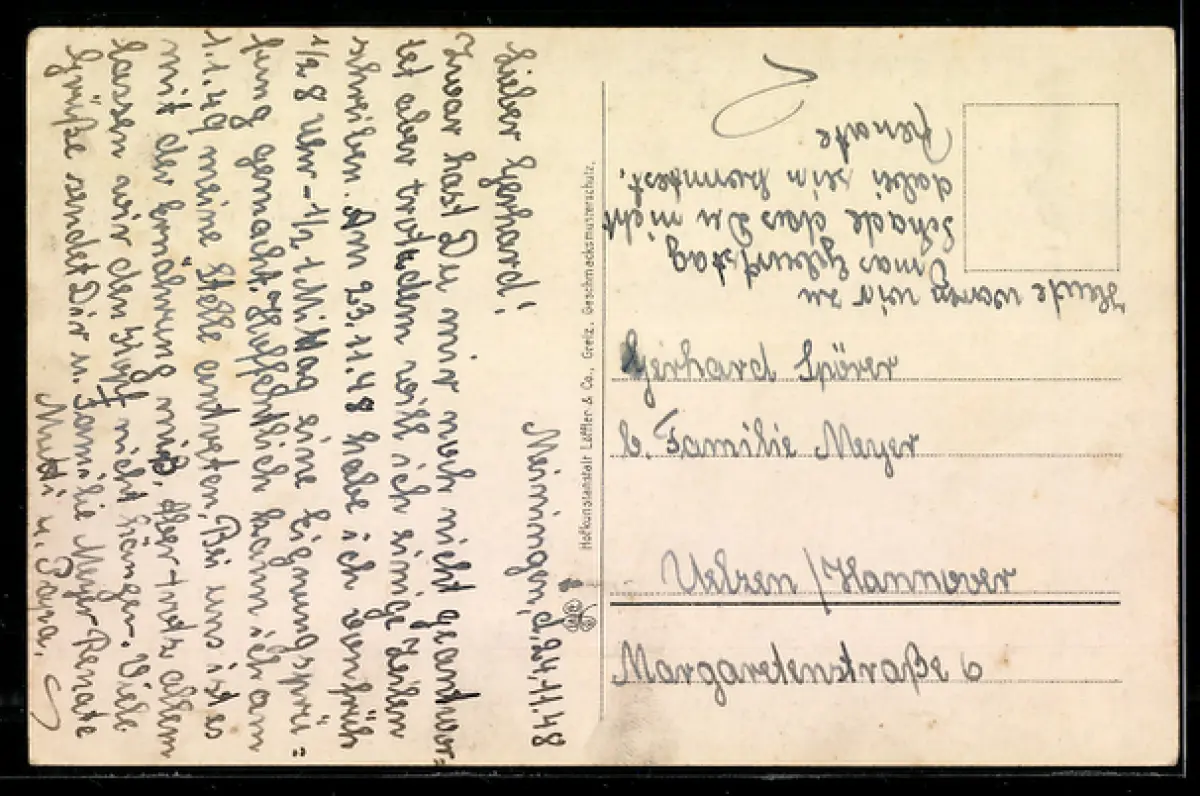 Meiningen, d. 24.11.48
Lieber Gerhard!
Zwar hast Du mir noch nicht geantwor=
tet aber trotzdem will ich einige Zeilen
schreiben. Am 23.11.48 habe ich von früh
1/2 8 Uhr – 1/2 1 Mittag eine Eignungsprü=
fung gemacht. Hoffentlich kann ich am
1.1.49 meine Stelle antreten. Bei uns ist es
mit der Ernährung mieß. Aber trotz allem
lassen wir den Kopf nicht hängen. Viele
Grüße sendet Dir u. Familie Meyer Renate
Mutti u. Papa.
Hofkunstanstalt Löffler & Co., Greiz. Geschmacksmusterschutz.
Heute waren wir zu
Omas Geburtstag
Schade das Du nicht
dabei sein konntest.
Renate
Gerhard Spörer
b. Familie Meyer
Uelzen / Hannover
Margaretenstraße 6